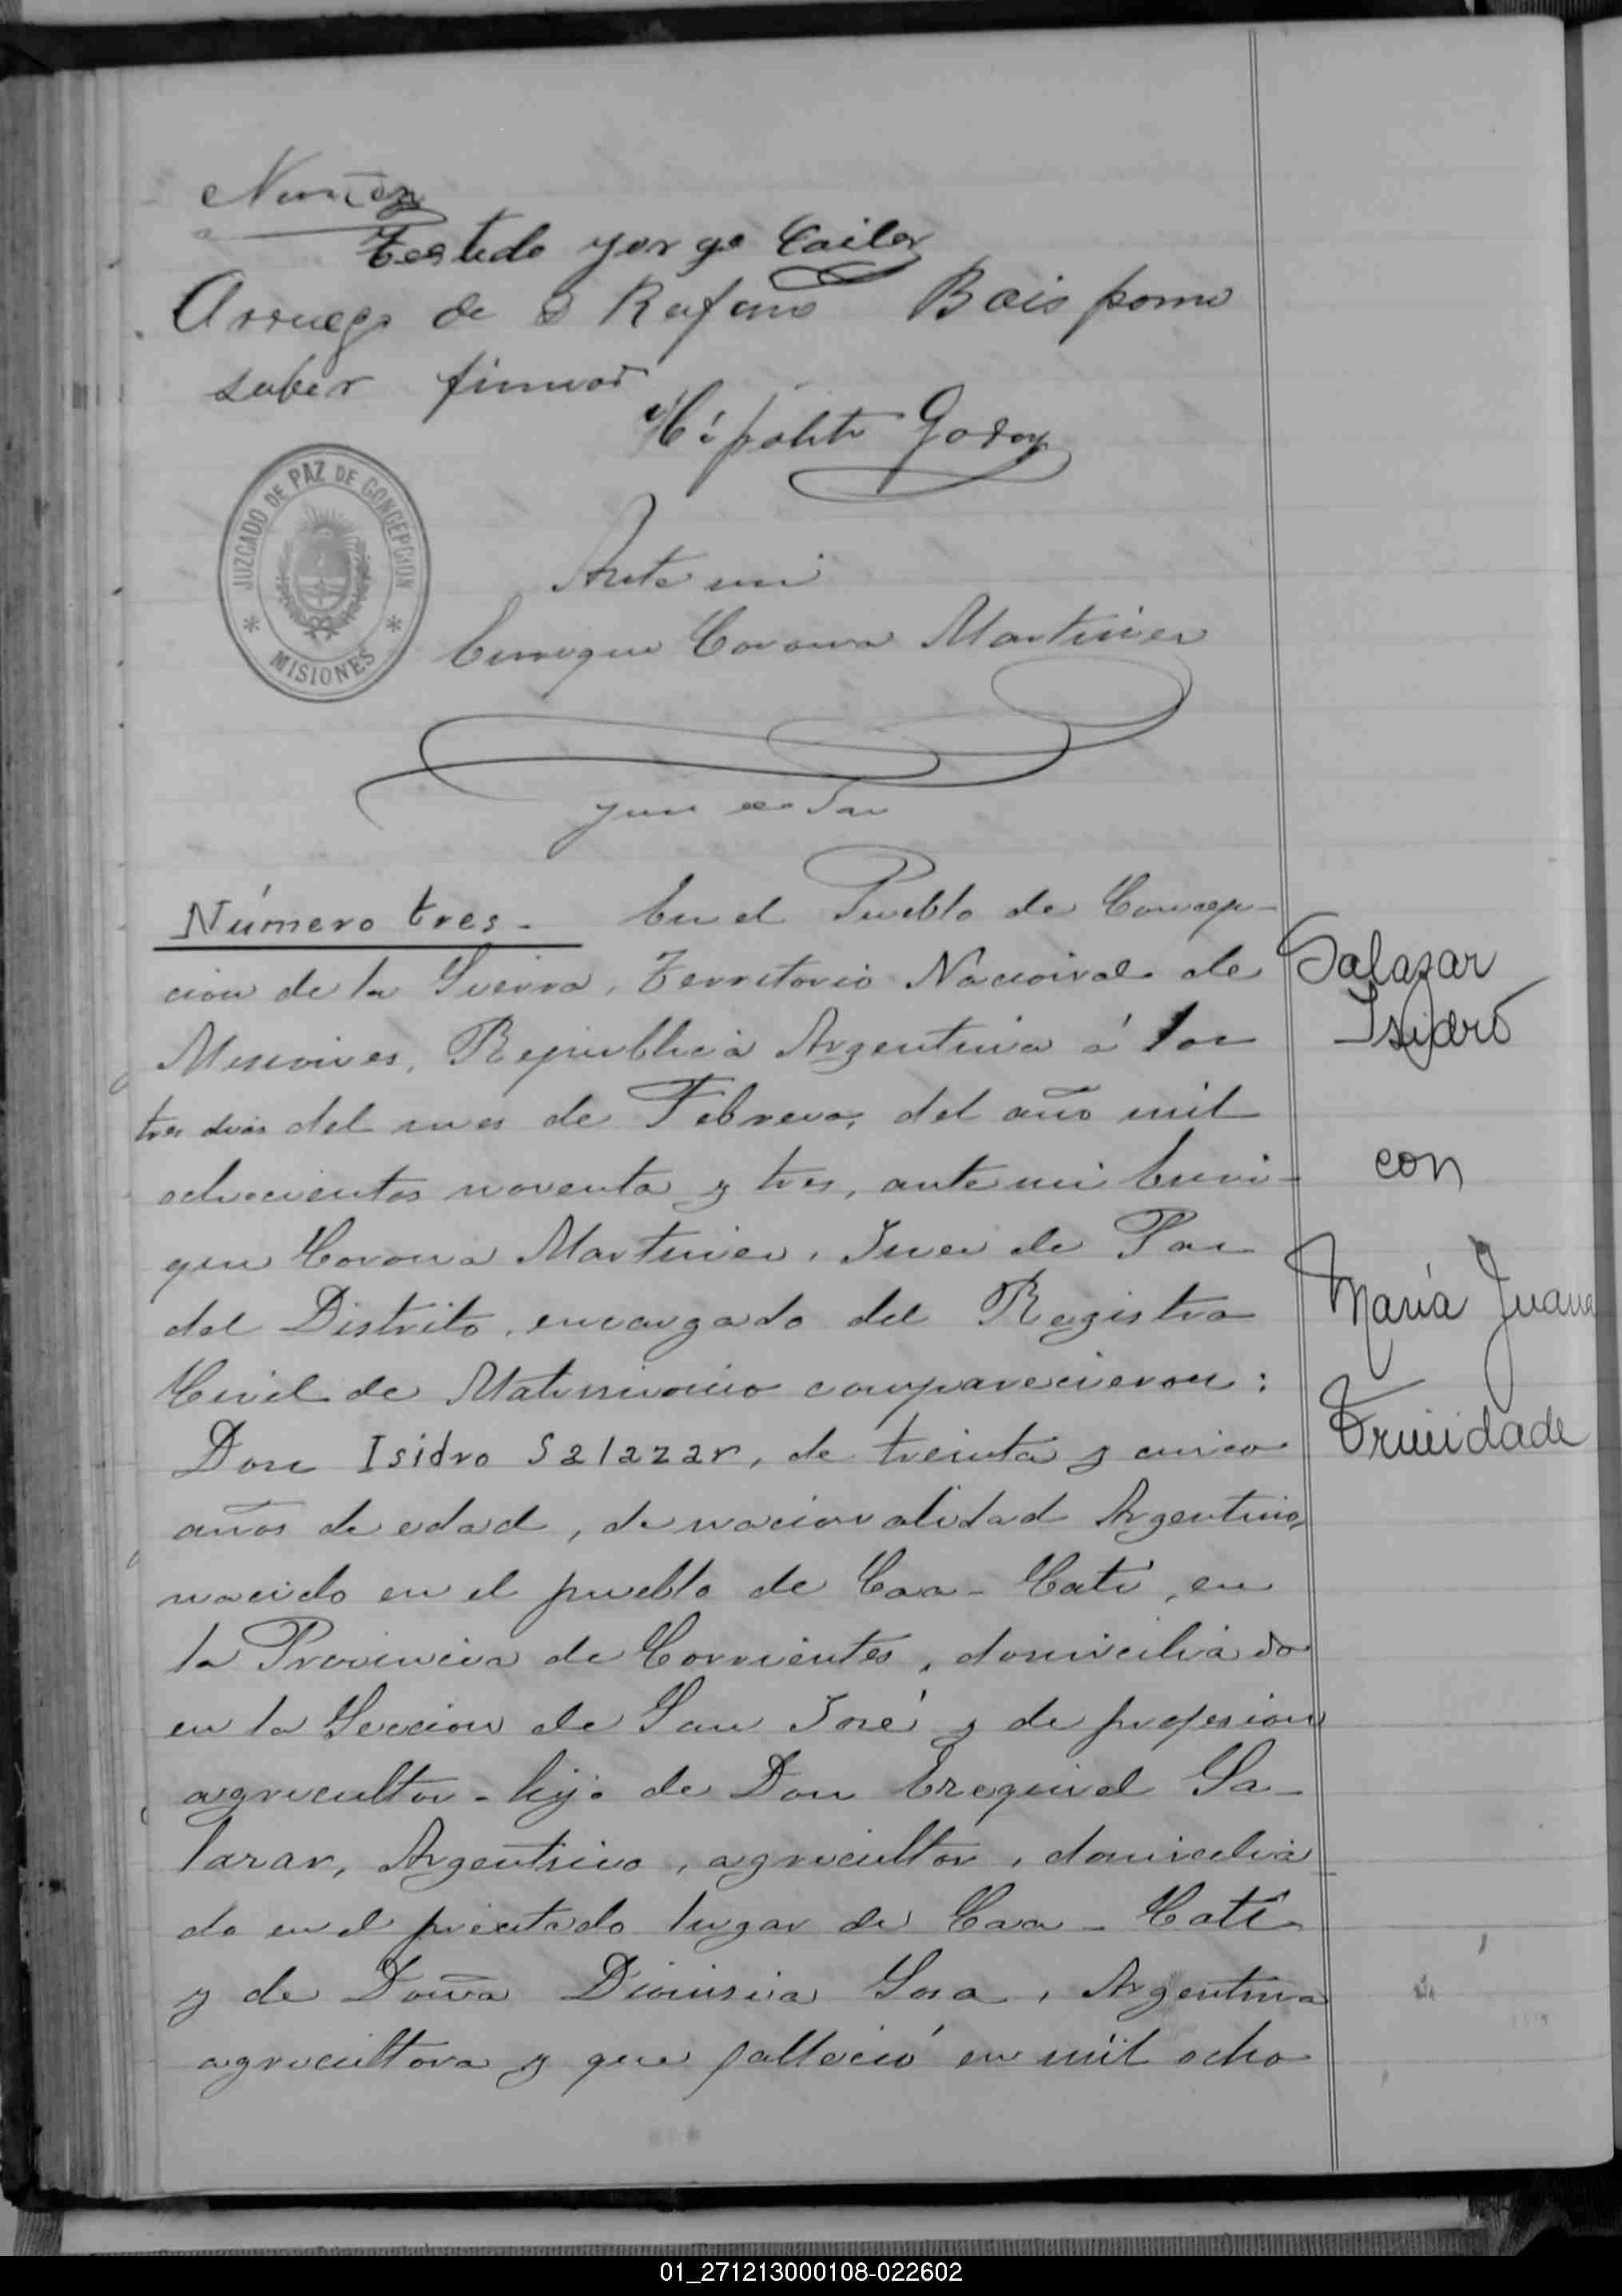 Nuñez
Testedo Jorge Cailer
Arruego de D Rafael Bais porno
saber firmar
Hipolito Godoy
JUZGADO DE PAZ DE CONCEPCION
* MISIONES *
Ante mi
Enrique Corona Martinez
Juez de Paz
Número tres. En el Pueblo de Concep-
cion de la Sierra, Territorio Nacional de
Misiones, República Argentina á los
tres dias del mes de Febrero, del año mil
ochocientos noventa y tres, ante mi Enri-
que Corona Martinez, Juez de Paz
del Distrito, encargado del Registro
Civil de Matrimonio comparecieron:
Don Isidro Salazar, de treinta y cinco
años de edad, de nacionalidad Argentino,
nacido en el pueblo de Caa-Catí, en
la Provincia de Corrientes, domiciliado
en la Seccion de San José y de profesion
agricultor - hijo de Don Ezequiel Sa-
lazar, Argentino, agricultor, domicilia
do en el precitado lugar de Caa-Catí
y de Doña Dionisia Sosa, Argentina
agricultora y que falleció en mil ocho
Salazar
Isidro
con
María Juana
Trinidade
01_271213000108-022602